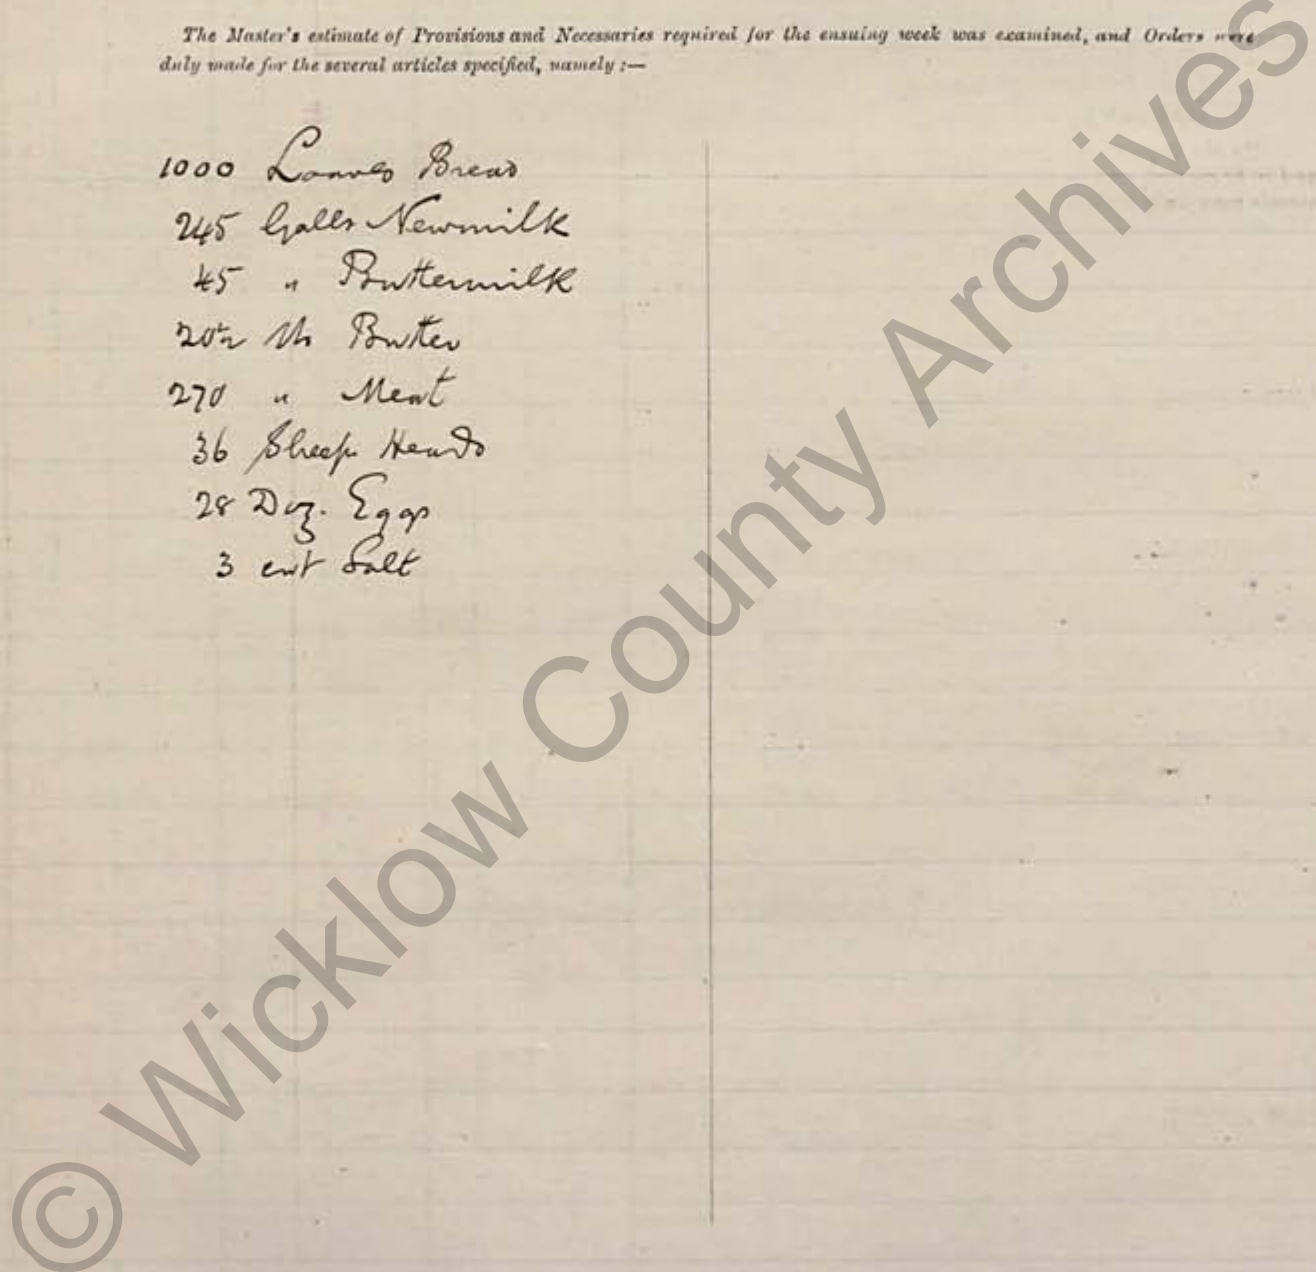 The Master's estimate of Provisions and Necessaries required for the ensuing week was examined, and Orders were
duly made for the several articles specified, namely :—
1000 Loaves Bread
245 Galls Newmilk
45 " Buttermilk
20½ lbs Butter
270 " Meat
36 Sheep Heads
28 Doz. Eggs
3 cwt Salt
© Wicklow County Archives